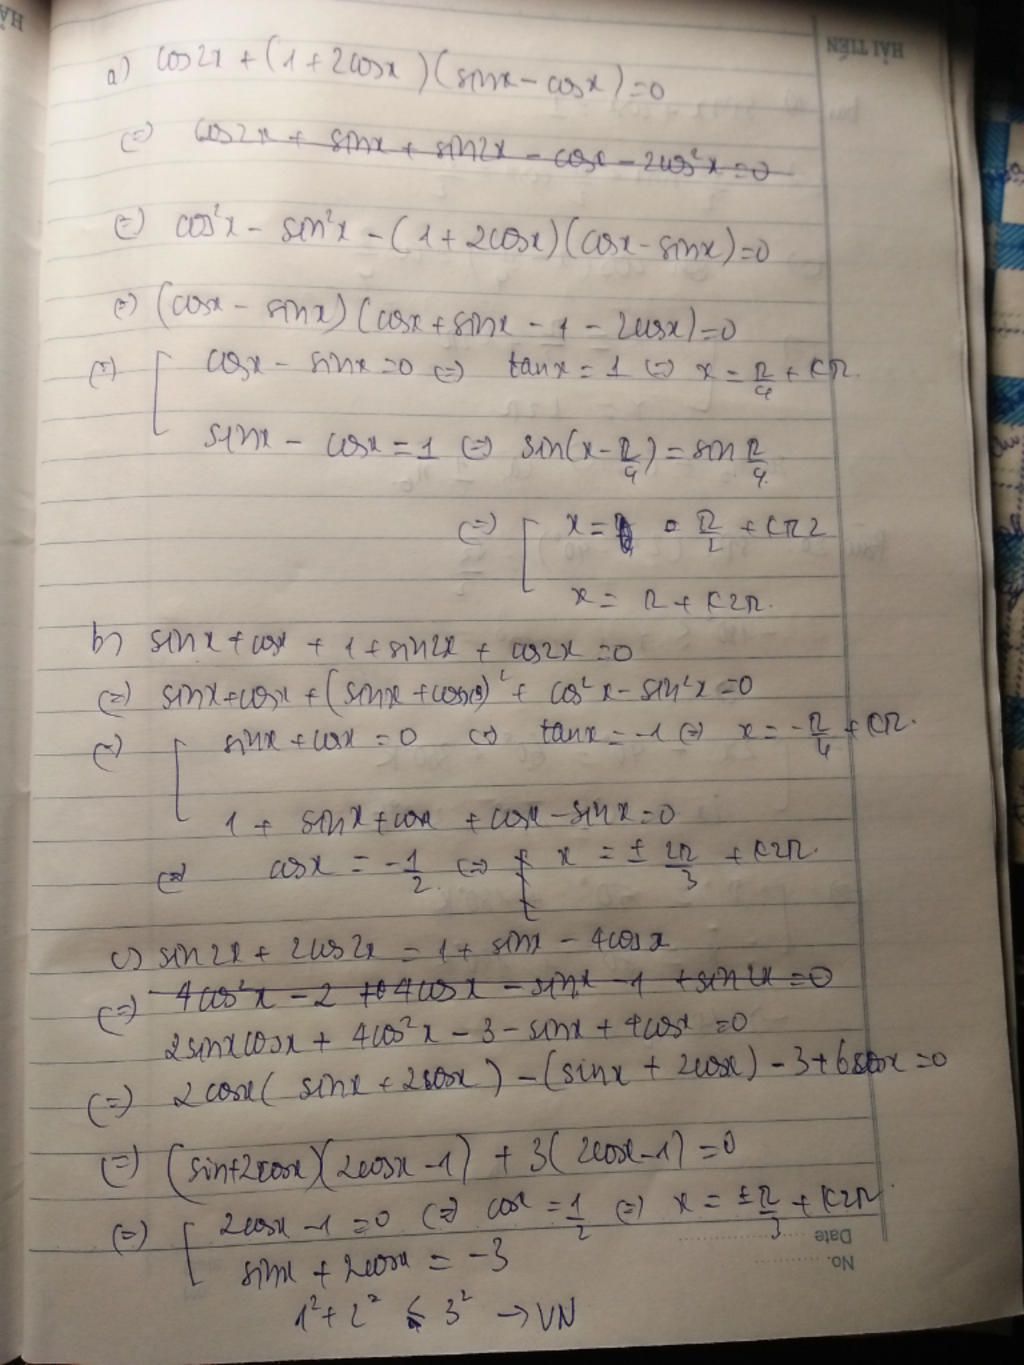 a) cos2x + (1+2cosx)(sinx-cosx)=0
(=) cos2x + sinx + sin2x - cosx - 2cos²x = 0
(=) cos²x - sin²x - (1+2cosx)(cosx-sinx)=0
(=) (cosx - sinx)(cosx+sinx-1-2cosx)=0
(=) [ cosx - sinx=0 (=) tanx=1 (=) x = π/4 + kπ
sinx - cosx=1 (=) sin(x-π/4)=sin π/4
(=) [ x = π/2 + kπ2
x = π + k2π.
b) sinx+cosx + 1+sin2x + cos2x =0
(=) sinx+cosx + (sinx+cosx)² + cos²x - sin²x =0
(=) [ sinx+cosx=0 (=) tanx=-1 (=) x = -π/4 + kπ.
1+ sinx+cosx + cosx-sinx=0
(=) cosx = -1/2 (=) [ x = ± 2π/3 + k2π.
c) sin2x + 2cos2x = 1+ sinx - 4cosx
(=) 4cos²x - 2 + 4cosx - sinx - 1 + sin2x =0
2sinxcosx + 4cos²x - 3 - sinx + 4cosx =0
(=) 2cosx( sinx + 2cosx) - (sinx + 2cosx) - 3+6cosx =0
(=) (sin+2cosx)(2cosx-1) + 3(2cosx-1)=0
(=) [ 2cosx-1=0 (=) cosx = 1/2 (=) x = ±π/3 + k2π.
sinx + 2cosx = -3
1²+2² < 3² → VN
HẢI TIẾN
Date
No.